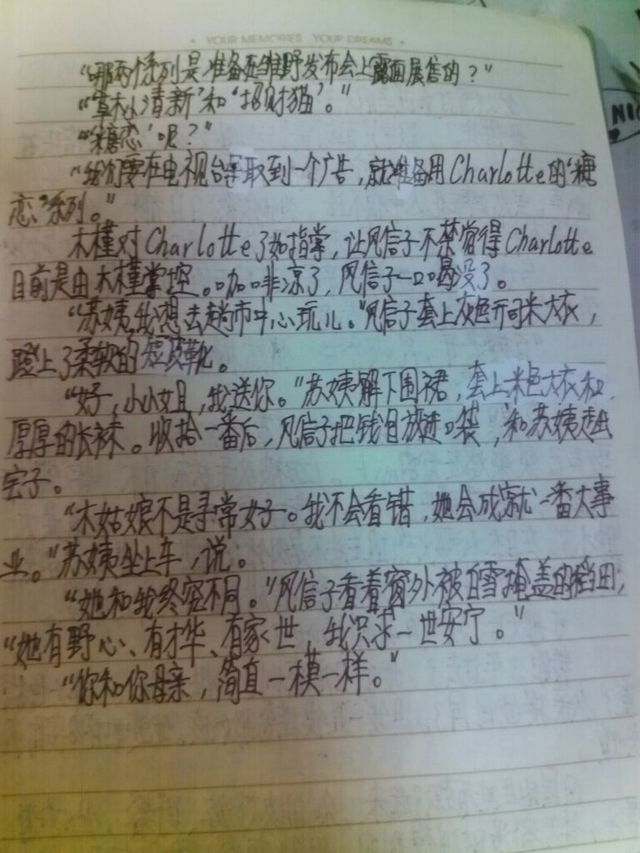 YOUR MEMORIES YOUR DREAMS
“那两个系列是准备在维野发布会上露面展售的？”
“草木小清新’和‘招财猫’。”
“‘糖恋’呢？”
“我们要在电视台争取到一个广告，就准备用Charlotte的‘糖
恋’系列。”
木槿对Charlotte了如指掌，让风信子不禁觉得Charlotte
目前是由木槿掌控。咖啡凉了，风信子一口没了。
“苏姨，我想去趟市中心玩儿。”风信子套上灰色开司米大衣，
蹬上了柔软的短皮靴。
“好，小小姐，我送你。”苏姨解下围裙，套上米色大衣和
厚厚的长袜。收拾一番后，风信子把钱包放进口袋，和苏姨走出
宅子。
“木姑娘不是寻常女子。我不会看错，她会成就一番大事
业。”苏姨坐上车，说。
“她和我终究不同。”风信子看着窗外被白雪掩盖的稻田，
“她有野心、有才华、有家世，我只求一世安宁。”
“你和你母亲，简直一模一样。”